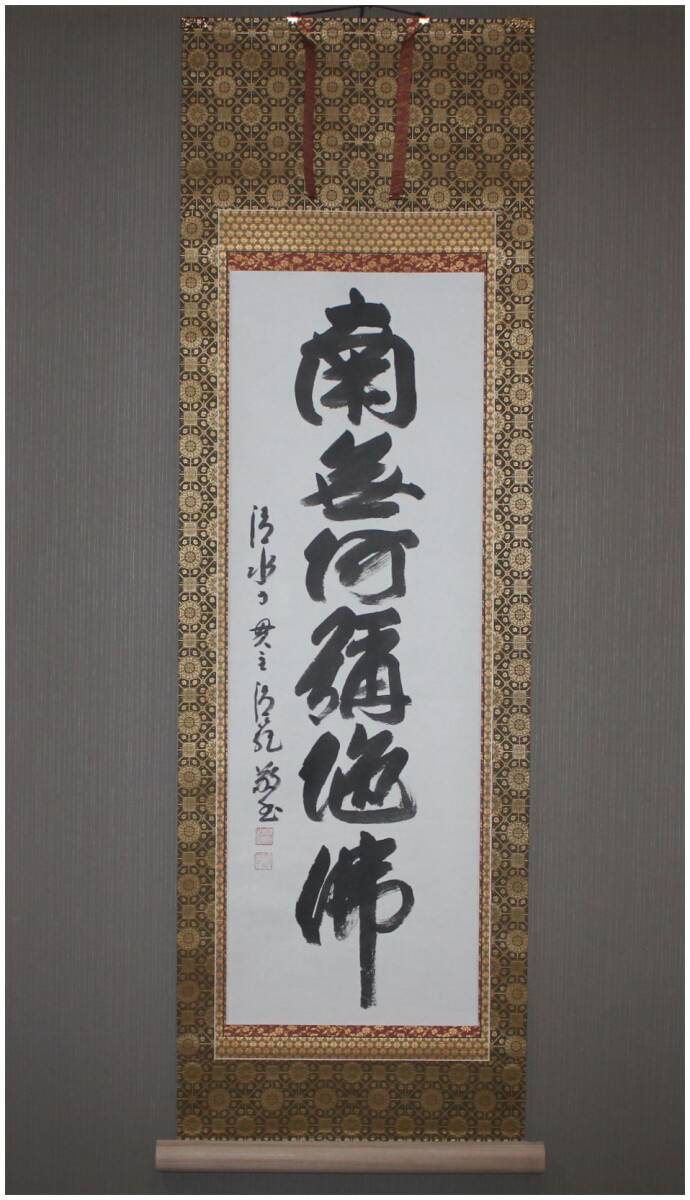 南無阿彌陀佛
清水寺貫主 清範 敬書